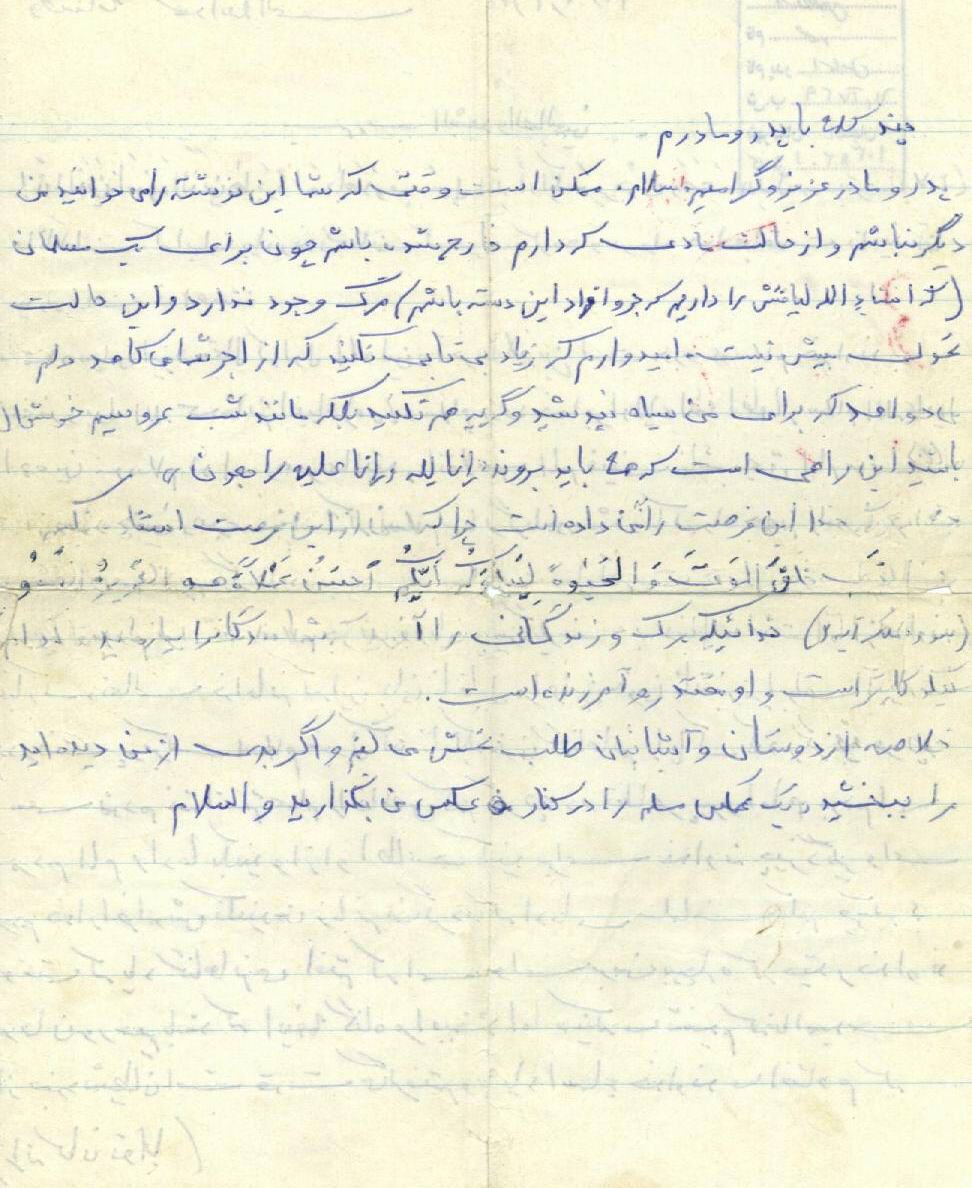 چند کلمه با پدر و مادرم
پدر و مادر عزیز و گرامیم، سلام، ممکن است وقتی که شما این نوشته را می خوانید من
دیگر نباشم و از حالت مادی که دارم خارج شده باشم چون برای یک مسلمان
(که انشاء الله لیاقتش را داریم که جزو افراد این دسته باشیم) مرگ وجود ندارد و این حالت
تحولی بیش نیست، امیدوارم که زیاد بی تابی نکنید که از اجر شما می کاهد دلم
می خواهد که برای من سیاه نپوشید و گریه هم نکنید بلکه مانند شب عروسیم خوشحال
باشید این راهی است که همه باید بروند، إنا لله و إنا علیه راجعون
خدا این فرصت را بمن داده است چرا که من از این فرصت استفاده نکنم
الذی خلق الموت و الحیوة لیبلوکم أیکم أحسن عملاً و هو العزیز الغفور
خدائیکه مرگ و زندگانی را آفرید که شما بندگان را بیازماید کدام
نیکوکارتر است و او مقتدر و آمرزنده است.
خلاصه از دوستان و آشنایان طلب بخشش می کنم و اگر بدی از من دیده اید
را ببخشید یک عکس را در کنار عکس من بگذارید و السلام